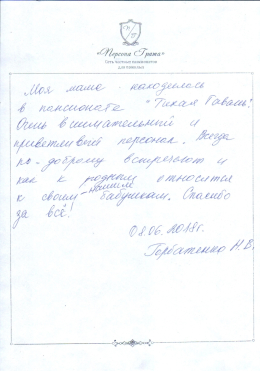 «Первая Грация»
Сеть частных пансионатов
для пожилых
Моя мама находилась
в пансионате "Тихая Гавань".
Очень внимательный и
приветливый персонал. Всегда
по-доброму встречают и
как к родным относятся
к своим - нашим бабушкам. Спасибо
за всё!
08.06.2018г.
Горбатенко Н.В.